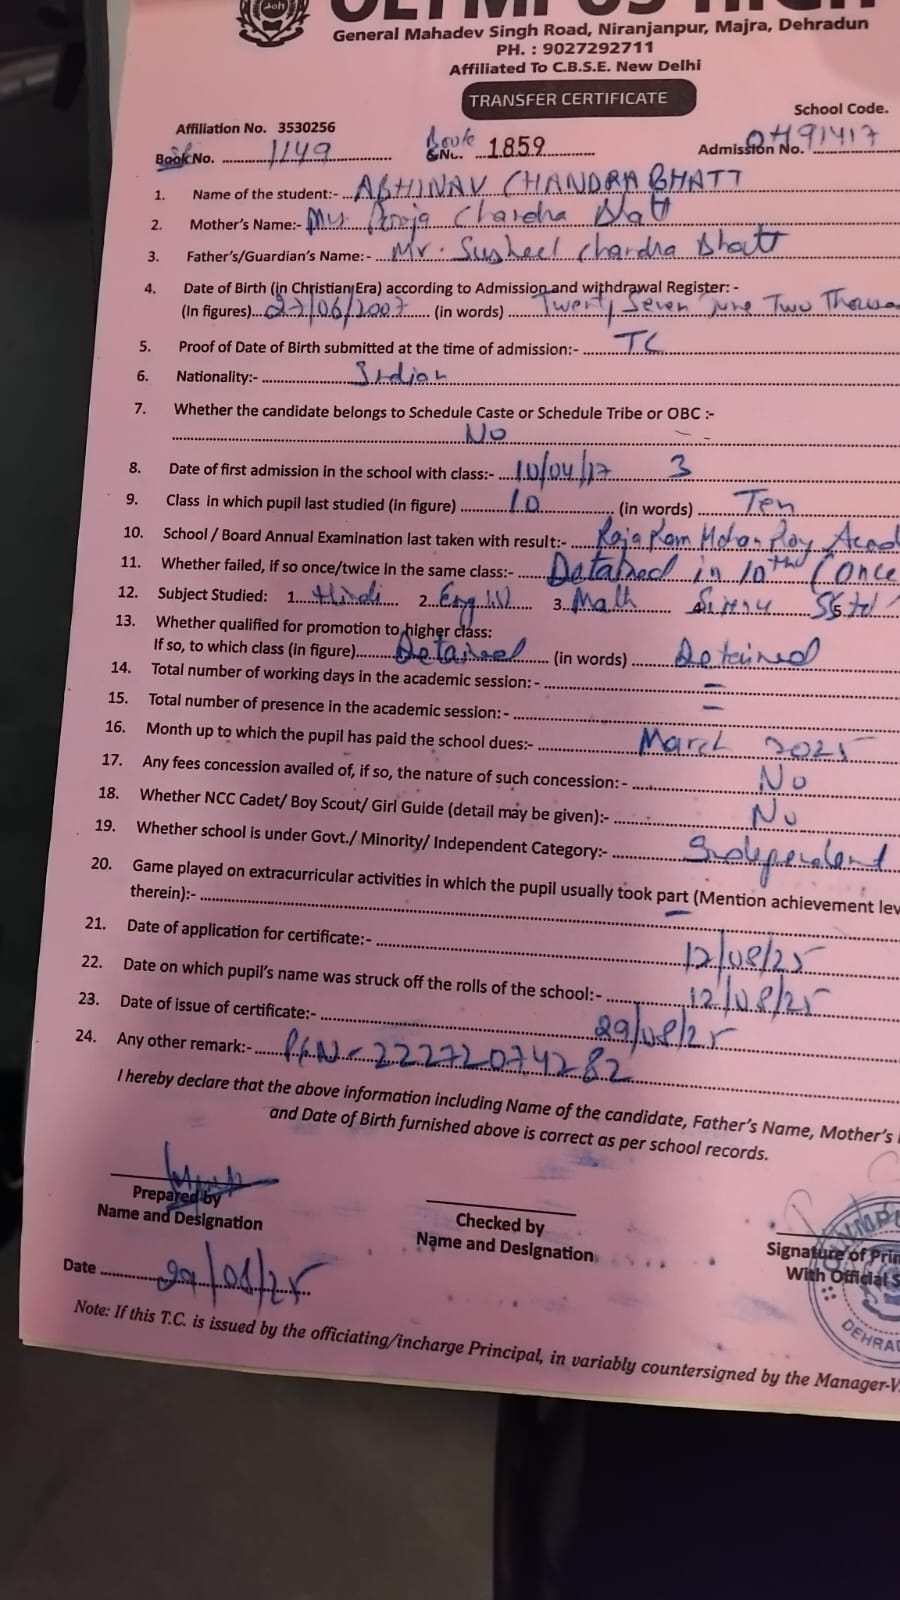 OLYMPUS HIGH
General Mahadev Singh Road, Niranjanpur, Majra, Dehradun
PH. : 9027292711
Affiliated To C.B.S.E. New Delhi
TRANSFER CERTIFICATE
School Code.
Affiliation No. 3530256
Book No. 1149 Book No. 1859 Admission No.
1. Name of the student:- ABHINAV CHANDRA BHATT
2. Mother's Name:- Chandra Bhatt
3. Father's/Guardian's Name:- Mr. Susheel Chandra Bhatt
4. Date of Birth (in Christian Era) according to Admission and withdrawal Register: -
(In figures) 27/06/2007 (in words) Twenty Seven June Two
5. Proof of Date of Birth submitted at the time of admission:- TC
6. Nationality:- Indian
7. Whether the candidate belongs to Schedule Caste or Schedule Tribe or OBC :-
No
8. Date of first admission in the school with class:- 10/04/17 3
9. Class in which pupil last studied (in figure) 10 (in words) Ten
10. School / Board Annual Examination last taken with result:- Raja Ram Mohan Roy
11. Whether failed, if so once/twice in the same class:- Detained in 10th (Once
12. Subject Studied: 1. Hindi 2. Eng 3. Math Science 5
13. Whether qualified for promotion to higher class:
If so, to which class (in figure) Detained (in words) Detained
14. Total number of working days in the academic session: -
15. Total number of presence in the academic session: -
16. Month up to which the pupil has paid the school dues:- March 2025
17. Any fees concession availed of, if so, the nature of such concession: - No
18. Whether NCC Cadet/ Boy Scout/ Girl Guide (detail may be given):- No
19. Whether school is under Govt./ Minority/ Independent Category:- Independent
20. Game played on extracurricular activities in which the pupil usually took part (Mention achievement lev
therein):-
21. Date of application for certificate:- 12/08/25
22. Date on which pupil's name was struck off the rolls of the school:- 12/08/25
23. Date of issue of certificate:- 29/08/25
24. Any other remark:- PEN - 22272074282
I hereby declare that the above information including Name of the candidate, Father's Name, Mother's
and Date of Birth furnished above is correct as per school records.
Prepared by
Name and Designation
Checked by
Name and Designation
Signature of Prin
With Official S
DEHRA
Date 29/08/25
Note: If this T.C. is issued by the officiating/incharge Principal, in variably countersigned by the Manager-V